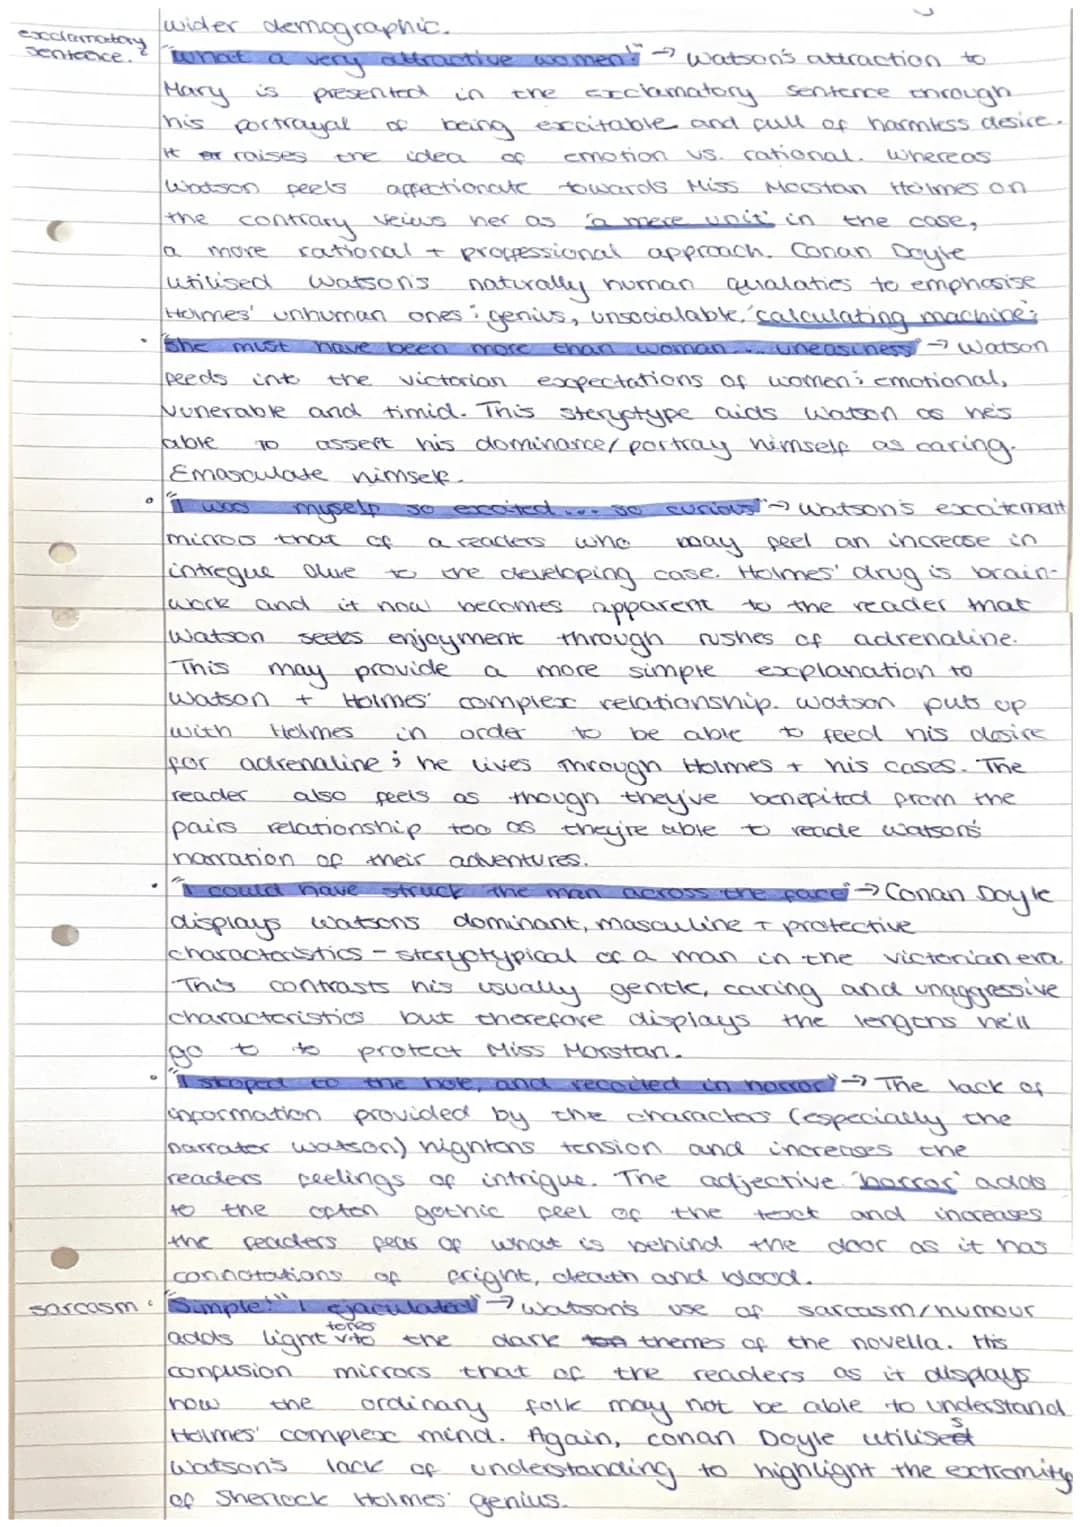 wider demographic.
exclamatory
sentence.
"What a very attractive women!" → Watson's attraction to
Mary is presented in the exclamatory sentence through
his portrayal of being excitable and full of harmless desire.
It raises the idea of emotion vs. rational. Whereas
Watson feels affectionate towards Miss Morstan Holmes on
the contrary veiws her as 'a mere unit' in the case,
a more rational + proffessional approach. Conan Doyle
utilised Watson's naturally human qualaties to emphasise
Holmes' unhuman ones: genius, unsocialable, 'calculating machine'
• "She must have been more than woman... uneasiness" → Watson
feeds into the victorian expectations of women: emotional,
vunerable and timid. This steryotype aids Watson as he's
able to assert his dominance/portray himself as caring.
Emasculate himself.
• "I was myself so excited... so curious" → Watson's excitement
mirrors that of a readers who may feel an increase in
intregue due to the developing case. Holmes' drug is brain-
work and it now becomes apparent to the reader that
Watson seeks enjoyment through rushes of adrenaline.
This may provide a more simple explanation to
Watson + Holmes' complex relationship. Watson puts up
with Holmes in order to be able to feed his desire
for adrenaline; he lives through Holmes + his cases. The
reader also feels as though they've benefited from the
pairs relationship too as they're able to reade Watson's
narration of their adventures.
• "I could have struck the man across the face" → Conan Doyle
displays Watsons dominant, masculine + protective
characteristics - steryotypical of a man in the victorian era.
This contrasts his usually gentle, caring and unaggressive
characteristics but therefore displays the lengths he'll
go to to protect Miss Morstan.
• "I stooped to the hole, and recoiled in horror" → The lack of
information provided by the characters (especially the
narrater Watson) hightens tension and increases the
readers feelings of intrigue. The adjective 'horror' adds
to the often gothic feel of the text and increases
the readers fear of what is behind the door as it has
connotations of fright, death and blood.
sarcasm: "Simple!" I ejaculated" → Watson's use of sarcasm/humour
adds light tones to the dark themes of the novella. His
confusion mirrors that of the readers as it displays
how the ordinary folk may not be able to understand
Holmes' complex mind. Again, Conan Doyle utilises
Watson's lack of understanding to highlight the extremity
of Sherlock Holmes' genius.